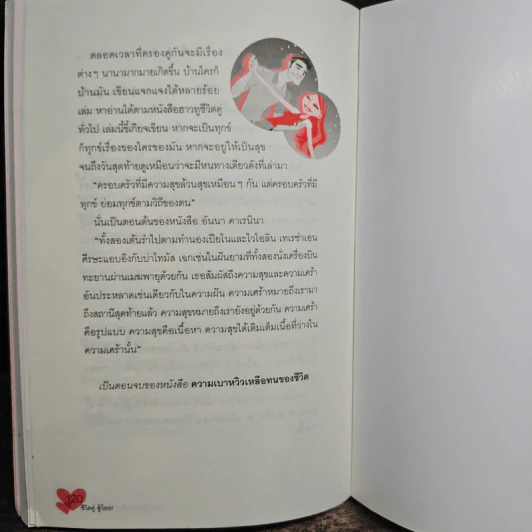 ตลอดเวลาที่ครองคู่กันจะมีเรื่อง
ต่างๆ นานามากมายเกิดขึ้น บ้านใครก็
บ้านมัน เขียนแจกแจงได้หลายร้อย
เล่ม หาอ่านได้ตามหนังสือฮาวทูชีวิตคู่
ทั่วไป เล่มนี้ขี้เกียจเขียน หากจะเป็นทุกข์
ก็ทุกข์เรื่องของใครของมัน หากจะอยู่ให้เป็นสุข
จนถึงวันสุดท้ายดูเหมือนว่าจะมีหนทางเดียวดังที่เล่ามา
"ครอบครัวที่มีความสุขล้วนสุขเหมือนๆ กัน แต่ครอบครัวที่มี
ทุกข์ ย่อมทุกข์ตามวิถีของตน"
นั่นเป็นตอนต้นของหนังสือ อันนา คาเรนินา
"ทั้งสองเต้นรำไปตามทำนองเปียโนและไวโอลิน เทเรซ่าเอน
ศีรษะแอบอิงกับบ่าโทมัส เฉกเช่นในฝันยามที่ทั้งสองนั่งเครื่องบิน
ทะยานผ่านเมฆพายุด้วยกัน เธอสัมผัสถึงความสุขและความเศร้า
อันประหลาดเช่นเดียวกับในความฝัน ความเศร้าหมายถึงเรามา
ถึงสถานีสุดท้ายแล้ว ความสุขหมายถึงเรายังอยู่ด้วยกัน ความเศร้า
คือรูปแบบ ความสุขคือเนื้อหา ความสุขได้เติมเต็มเนื้อที่ว่างใน
ความเศร้านั้น"
เป็นตอนจบของหนังสือ ความเบาหวิวเหลือทนของชีวิต
120
ชีวิตคู่ กู้ร้อย!